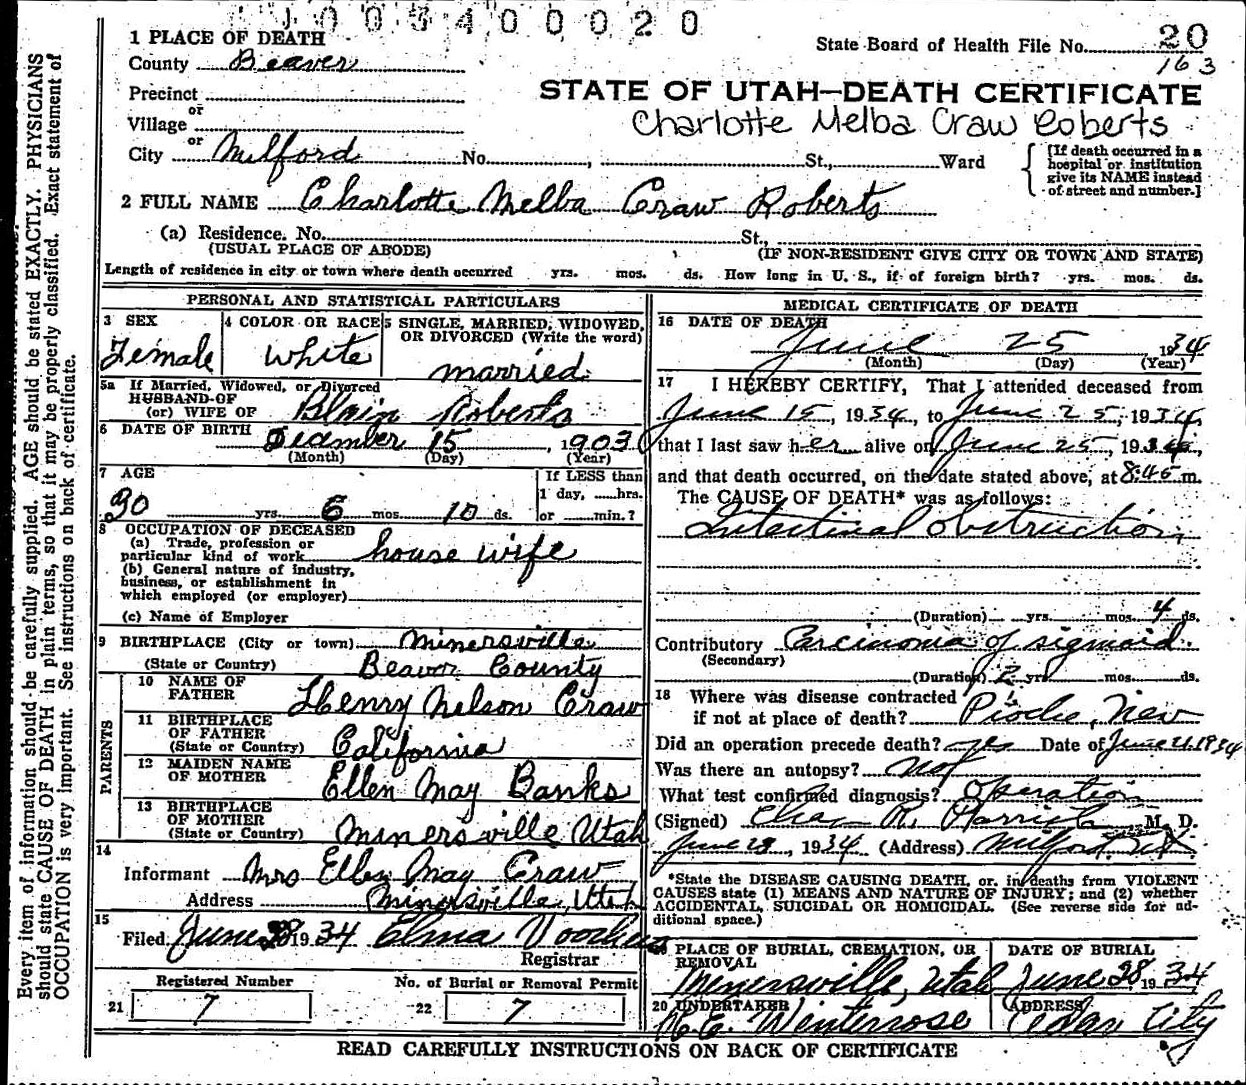 J003400020
State Board of Health File No. 20
163
1 PLACE OF DEATH
County Beaver
Precinct
or
Village
or
City Milford No. , St., Ward
STATE OF UTAH—DEATH CERTIFICATE
Charlotte Melba Craw Roberts
[If death occurred in a
hospital or institution
give its NAME instead
of street and number.]
2 FULL NAME Charlotte Melba Craw Roberts
(a) Residence. No. St.,
(USUAL PLACE OF ABODE) (IF NON-RESIDENT GIVE CITY OR TOWN AND STATE)
Length of residence in city or town where death occurred yrs. mos. ds. How long in U. S., if of foreign birth? yrs. mos. ds.
PERSONAL AND STATISTICAL PARTICULARS
3 SEX
Female
4 COLOR OR RACE
White
5 SINGLE, MARRIED, WIDOWED,
OR DIVORCED (Write the word)
married
5a If Married, Widowed, or Divorced
HUSBAND OF
(or) WIFE OF Blain Roberts
6 DATE OF BIRTH
December 15, 1903
(Month) (Day) (Year)
7 AGE
30 yrs. 6 mos. 10 ds.
If LESS than
1 day, hrs.
or min.?
8 OCCUPATION OF DECEASED
(a) Trade, profession or
particular kind of work house wife
(b) General nature of industry,
business, or establishment in
which employed (or employer)
(c) Name of Employer
9 BIRTHPLACE (City or town) Minersville
(State or Country) Beaver County
PARENTS
10 NAME OF
FATHER Henry Nelson Craw
11 BIRTHPLACE
OF FATHER
(State or Country) California
12 MAIDEN NAME
OF MOTHER Ellen May Banks
13 BIRTHPLACE
OF MOTHER
(State or Country) Minersville Utah
14
Informant Mrs Ellen May Craw
Address Minersville, Utah
15
Filed June 28 1934 Elma
Registrar
Registered Number
21 7
No. of Burial or Removal Permit
22 7
MEDICAL CERTIFICATE OF DEATH
16 DATE OF DEATH
June 25 1934
(Month) (Day) (Year)
17 I HEREBY CERTIFY, That I attended deceased from
June 15, 1934, to June 25, 1934,
that I last saw her alive on June 25, 1934,
and that death occurred, on the date stated above, at 8:45 m.
The CAUSE OF DEATH* was as follows:
Intestinal Obstruction
(Duration) yrs. mos. 4 ds.
Contributory Carcinoma of sigmoid.
(Secondary)
(Duration) 2 yrs mos. ds.
18 Where was disease contracted
if not at place of death? Pioche, Nev
Did an operation precede death? yes Date of June 21 1934
Was there an autopsy? not
What test confirmed diagnosis? Operation
(Signed) R. M. D.
June 28, 1934 (Address) Milford, Ut
*State the DISEASE CAUSING DEATH, or, in deaths from VIOLENT
CAUSES state (1) MEANS AND NATURE OF INJURY; and (2) whether
ACCIDENTAL, SUICIDAL OR HOMICIDAL. (See reverse side for ad-
ditional space.)
19 PLACE OF BURIAL, CREMATION, OR
REMOVAL
Minersville, Utah
DATE OF BURIAL
June 28 1934
20 UNDERTAKER
Winterrose
ADDRESS
Cedar City
READ CAREFULLY INSTRUCTIONS ON BACK OF CERTIFICATE
Every item of information should be carefully supplied. AGE should be stated EXACTLY. PHYSICIANS
should state CAUSE OF DEATH in plain terms, so that it may be properly classified. Exact statement of
OCCUPATION is very important. See instructions on back of certificate.